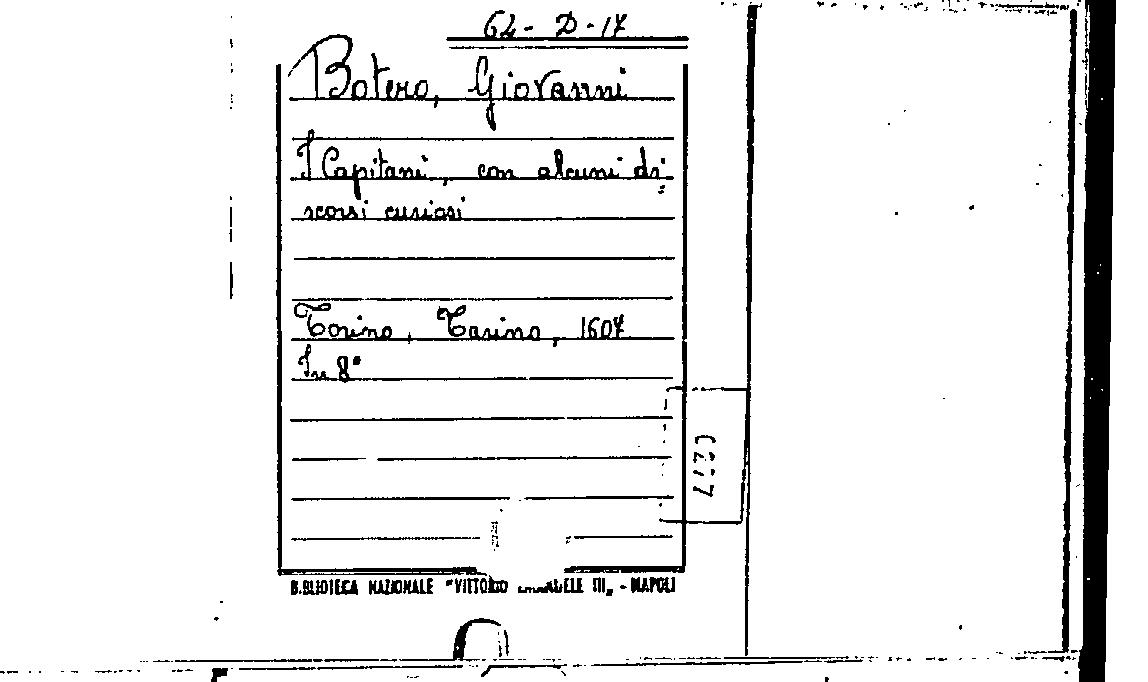 62-D-17
Botero, Giovanni
I Capitani, con alcuni di=
scorsi curiosi
Torino, Tarino, 1607
In 8°
BIBLIOTECA NAZIONALE "VITTORIO EMANUELE III„ - NAPOLI